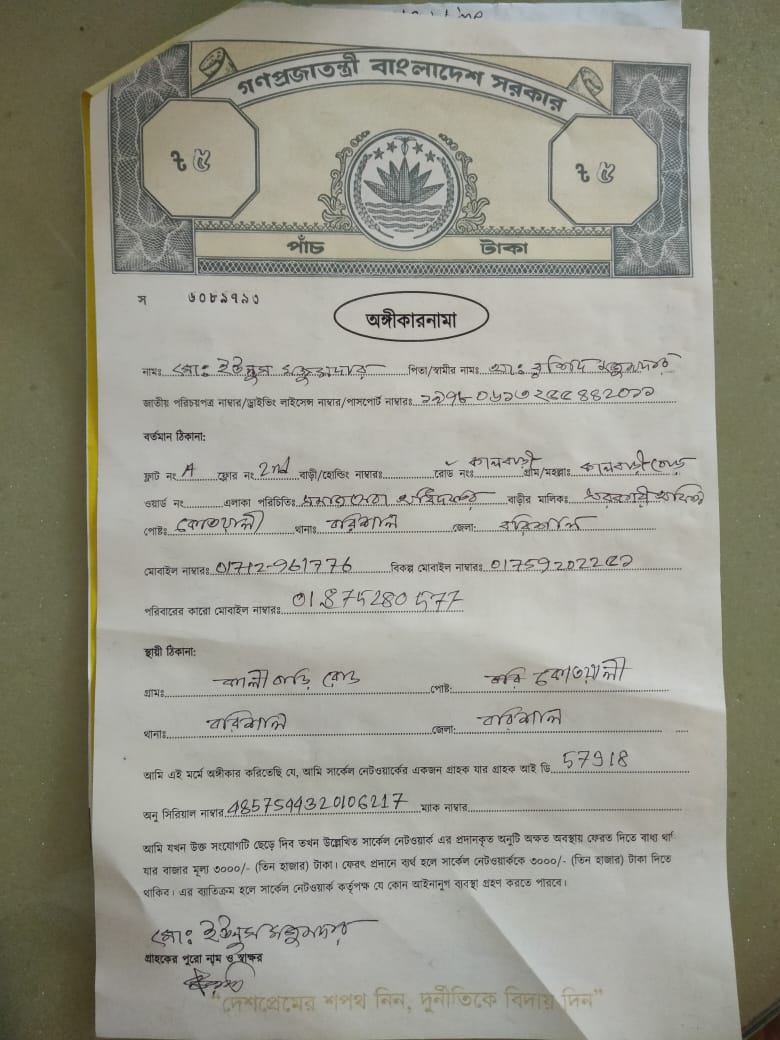 গণপ্রজাতন্ত্রী বাংলাদেশ সরকার
৳ ৫ ৳ ৫
পাঁচ টাকা
স ৬০৮৯৭৯৩
অঙ্গীকারনামা
নামঃ মোঃ ইউনুস মজুমদার পিতা/স্বামীর নামঃ মজুমদার
জাতীয় পরিচয়পত্র নাম্বার/ড্রাইভিং লাইসেন্স নাম্বার/পাসপোর্ট নাম্বারঃ
বর্তমান ঠিকানা:
ফ্লাট নং A ফ্লোর নং 2nd বাড়ী/হোল্ডিং নাম্বারঃ রোড নংঃ কালীবাড়ী গ্রাম/মহল্লাঃ কালীবাড়ী রোড
ওয়ার্ড নং এলাকা পরিচিতিঃ সমাজসেবা অধিদপ্তর বাড়ীর মালিকঃ সরকারী অফিস
পোষ্টঃ কোতয়ালী থানাঃ বরিশাল জেলা: বরিশাল
মোবাইল নাম্বারঃ 01712-961776 বিকল্প মোবাইল নাম্বারঃ
পরিবারের কারো মোবাইল নাম্বারঃ 01875280577
স্থায়ী ঠিকানা:
গ্রামঃ কালীবাড়ি রোড পোষ্ট: বরি কোতয়ালী
থানাঃ বরিশাল জেলা: বরিশাল
আমি এই মর্মে অঙ্গীকার করিতেছি যে, আমি সার্কেল নেটওয়ার্কের একজন গ্রাহক যার গ্রাহক আই ডি 57918
অনু সিরিয়াল নাম্বার 4857544320106217 ম্যাক নাম্বার
আমি যখন উক্ত সংযোগটি ছেড়ে দিব তখন উল্লেখিত সার্কেল নেটওয়ার্ক এর প্রদানকৃত অনুটি অক্ষত অবস্থায় ফেরত দিতে বাধ্য থা
যার বাজার মূল্য ৩০০০/- (তিন হাজার) টাকা। ফেরৎ প্রদানে ব্যর্থ হলে সার্কেল নেটওয়ার্ককে ৩০০০/- (তিন হাজার) টাকা দিতে
থাকিব। এর ব্যতিক্রম হলে সার্কেল নেটওয়ার্ক কর্তৃপক্ষ যে কোন আইনানুগ ব্যবস্থা গ্রহণ করতে পারবে।
মোঃ ইউনুস মজুমদার
গ্রাহকের পুরো নাম ও স্বাক্ষর
"দেশপ্রেমের শপথ নিন, দুর্নীতিকে বিদায় দিন"